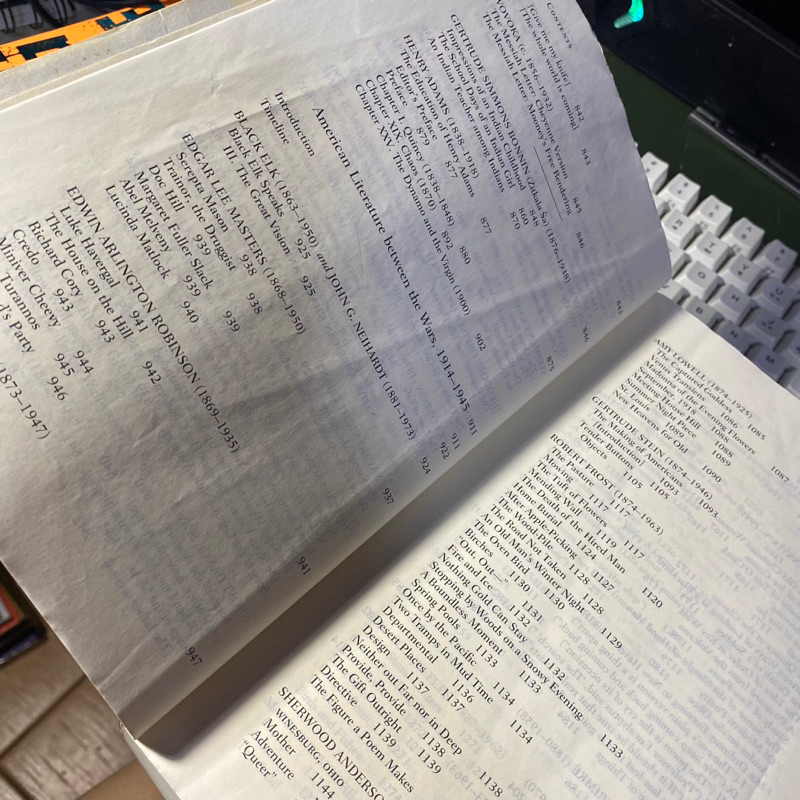 CONTENTS
[Give me my knife] 842
[The whole world is coming] 843
WOVOKA (c. 1856–1932)
The Messiah Letter: Cheyenne Version 845
The Messiah Letter: Mooney's Free Rendering 846
GERTRUDE SIMMONS BONNIN (Zitkala Ša) (1876–1938) 846
Impressions of an Indian Childhood 848
The School Days of an Indian Girl 860
An Indian Teacher among Indians 870
HENRY ADAMS (1838–1918) 875
The Education of Henry Adams 877
Editor's Preface 877
Preface 879
Chapter I. Quincy (1838–1848) 880
Chapter XIX. Chaos (1870) 892
Chapter XXV. The Dynamo and the Virgin (1900) 902
American Literature between the Wars, 1914–1945 911
Introduction 911
Timeline 922
BLACK ELK (1863–1950) and JOHN G. NEIHARDT (1881–1973) 924
Black Elk Speaks 925
III. The Great Vision 925
EDGAR LEE MASTERS (1868–1950) 937
Serepta Mason 938
Trainor, the Druggist 938
Doc Hill 939
Margaret Fuller Slack 939
Abel Melveny 939
Lucinda Matlock 940
EDWIN ARLINGTON ROBINSON (1869–1935) 941
Luke Havergal 941
The House on the Hill 942
Richard Cory 943
Credo 943
Miniver Cheevy 944
Tyrannos 945
's Party 946
(1873–1947) 947
AMY LOWELL (1874–1925) 1085
The Captured Goddess 1086
Venus Transiens 1087
Madonna of the Evening Flowers
September, 1918 1088
Meeting-House Hill 1088
Summer Night Piece 1089
St. Louis 1089
New Heavens for Old 1090
GERTRUDE STEIN (1874–1946) 1093
The Making of Americans 1093
[Introduction]
Tender Buttons 1105
Objects 1105
ROBERT FROST (1874–1963)
The Pasture 1117
Mowing 1117
The Tuft of Flowers 1117
Mending Wall 1119
The Death of the Hired Man 1120
Home Burial 1124
After Apple-Picking 1127
The Wood-Pile 1128
The Road Not Taken 1128
An Old Man's Winter Night 1129
The Oven Bird 1130
Birches 1130
"Out, Out—" 1131
Fire and Ice 1132
Nothing Gold Can Stay 1132
Stopping by Woods on a Snowy Evening 1133
A Boundless Moment 1133
Spring Pools 1133
Once by the Pacific 1134
Two Tramps in Mud Time 1134
Departmental 1136
Desert Places 1137
Design 1137
Neither out Far nor in Deep 1138
Provide, Provide 1138
The Gift Outright 1139
Directive 1139
The Figure a Poem Makes
SHERWOOD ANDERSO
WINESBURG, OHIO
Mother 1144
Adventure
"Queer"